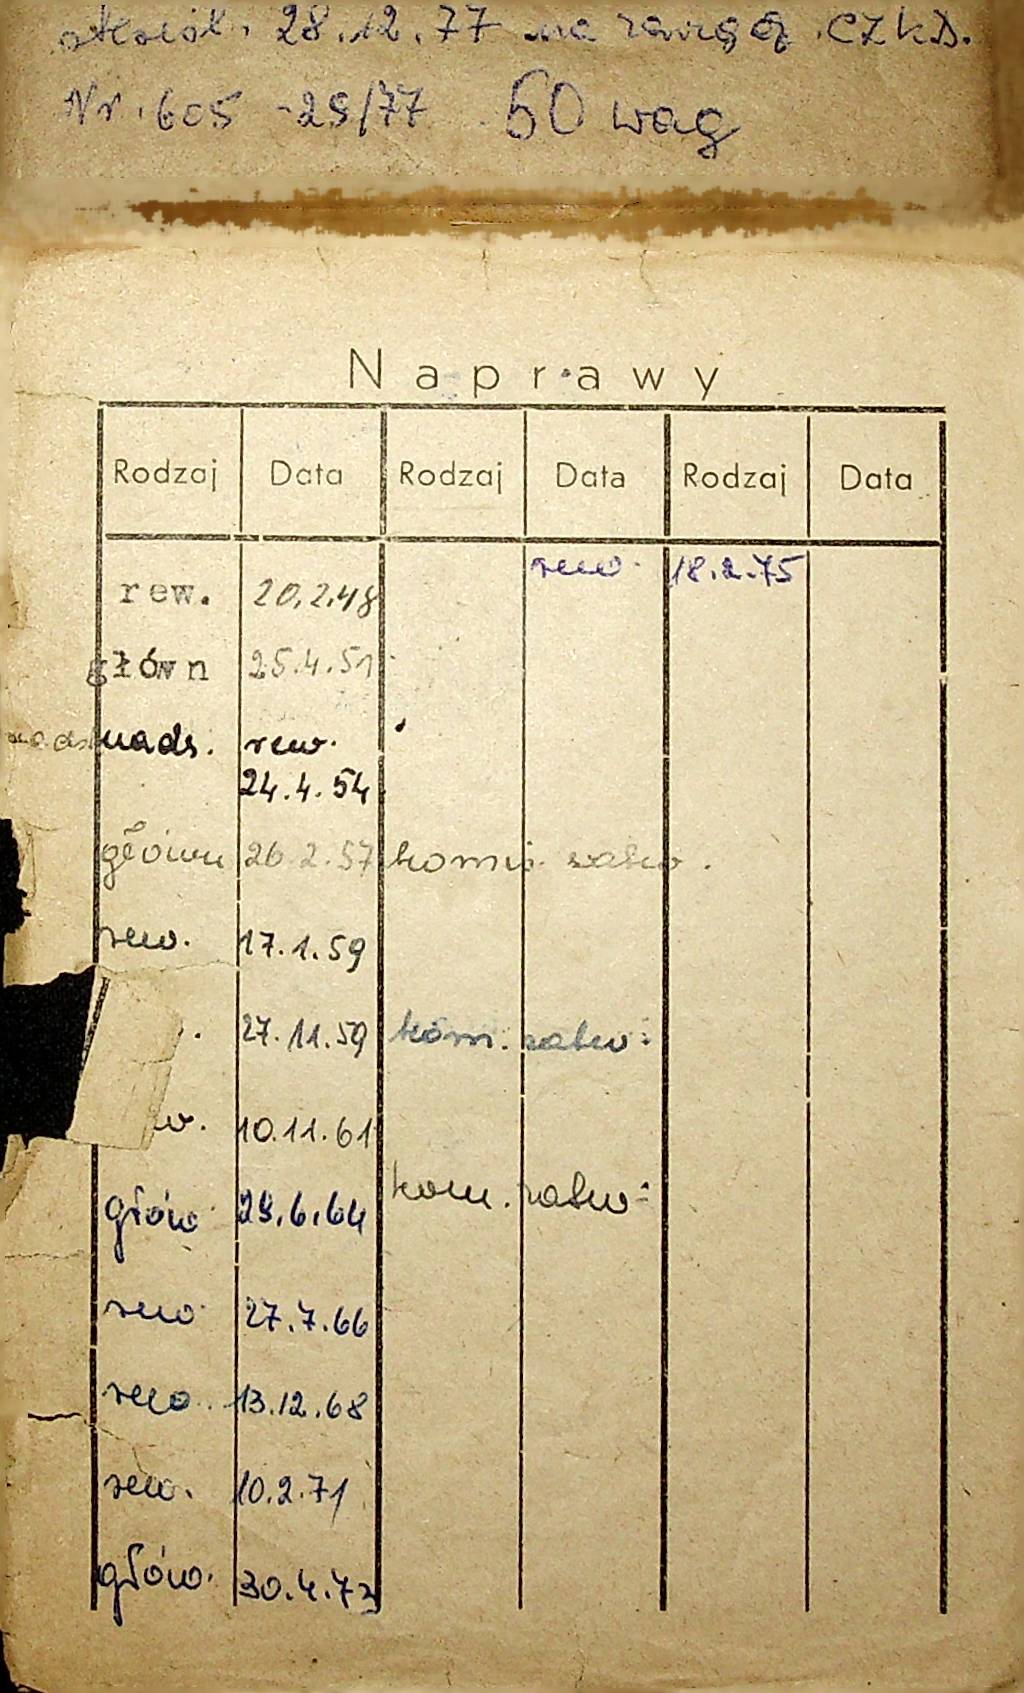 28.12.77 na CZKD.
Nr. 605 -29/77 50 wag
Naprawy
Rodzaj Data Rodzaj Data Rodzaj Data
rew. 18.2.75
rew. 20.2.48
główn 25.4.51
nads. rew.
24.4.54
główn 26.2.57 komis. .
rew. 17.1.59
. 27.11.59 kom.
w. 10.11.61
głów 29.6.64 kom.
rew 27.7.66
rew. 13.12.68
rew. 10.2.71
głów. 30.4.73